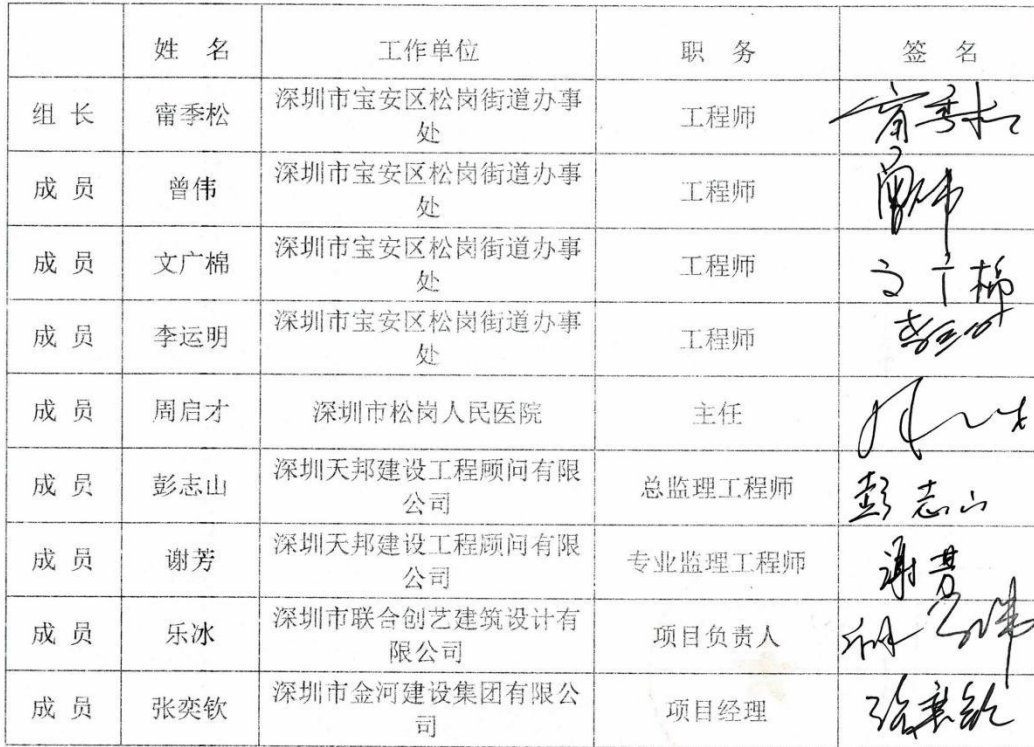 姓 名 工作单位 职 务 签 名
组 长 甯季松 深圳市宝安区松岗街道办事 工程师 甯季松
处
成 员 曾伟 深圳市宝安区松岗街道办事 工程师 曾伟
处
成 员 文广棉 深圳市宝安区松岗街道办事 工程师 文广棉
处
成 员 李运明 深圳市宝安区松岗街道办事 工程师
处
成 员 周启才 深圳市松岗人民医院 主任
成 员 彭志山 深圳天邦建设工程顾问有限 总监理工程师 彭志山
公司
成 员 谢芳 深圳天邦建设工程顾问有限 专业监理工程师 谢芳
公司
成 员 乐冰 深圳市联合创艺建筑设计有 项目负责人
限公司
成 员 张奕钦 深圳市金河建设集团有限公 项目经理 张奕钦
司